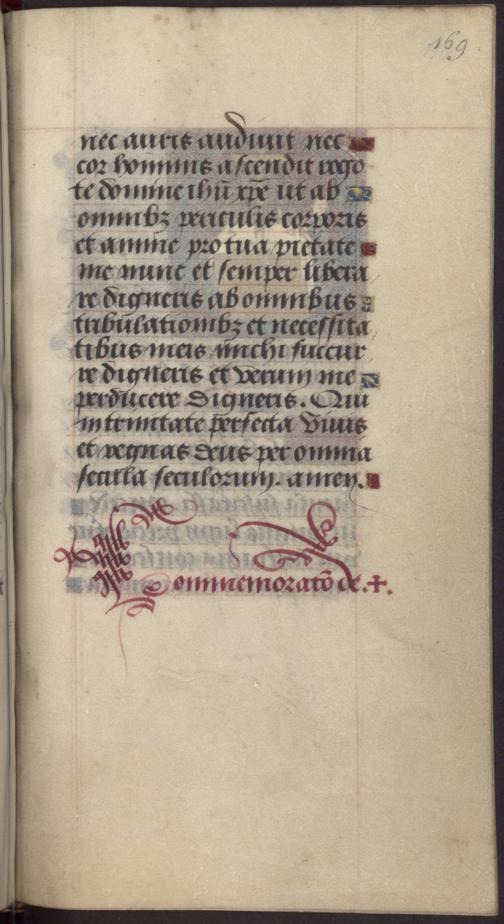 169
nec auris audiuit nec
cor hominis ascendit rogo
te domine ihū xp̄e ut ab
omnibꝫ periculis corporis
et anime pro tua pietate
me nunc et semper libera
re digneris ab omnibus
tribulationibꝫ et necessita
tibus meis michi succur
re digneris et verum me
perducere digneris. Qui
in trinitate perfecta viuis
et regnas deus per omnia
secula seculorum. amen.
Commemoratō de .+.